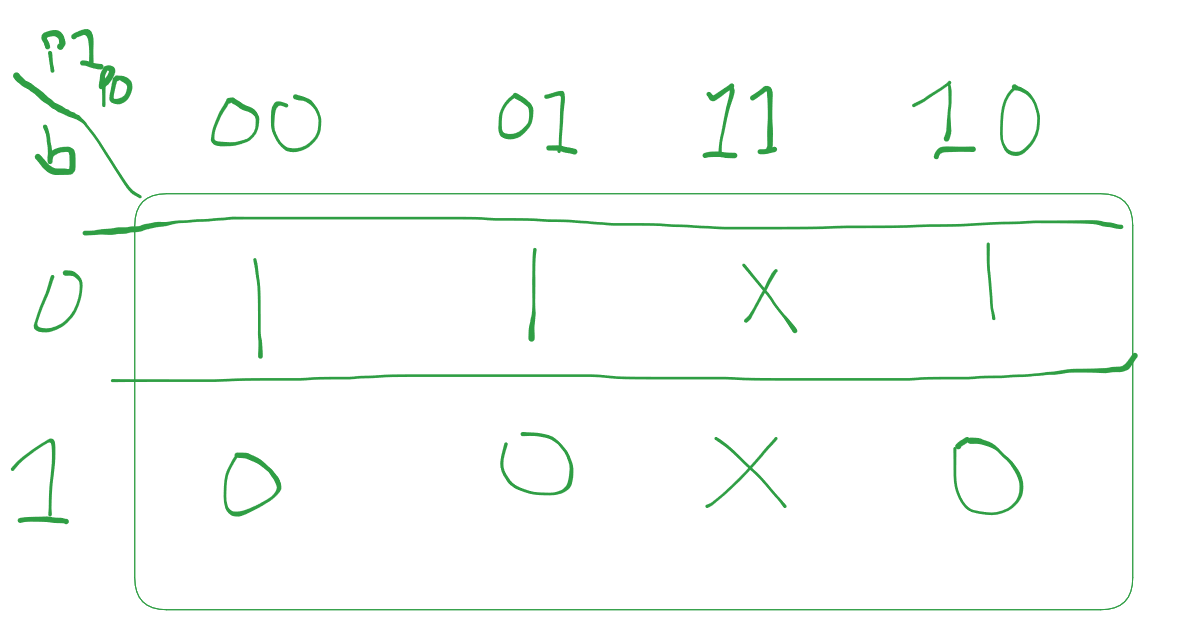 p1p0
b
00 01 11 10
0 1 1 X 1
1 0 0 X 0